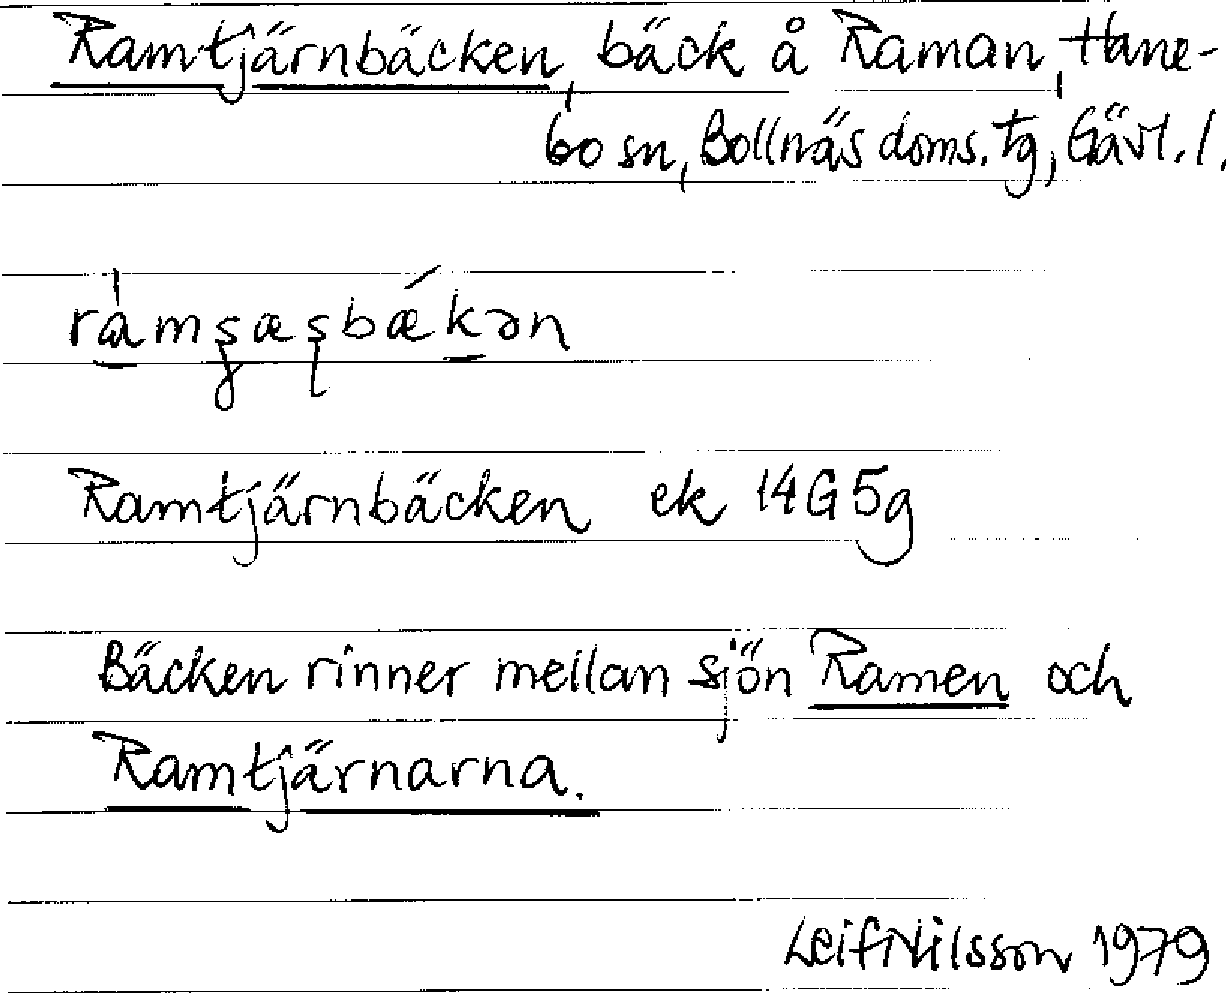 Ramtjärnbäcken, bäck å Raman, Hane-
bo sn, Bollnäs doms. tg, Gävl. l.
Ramtjärnbäcken ek 14G 5g
Bäcken rinner mellan sjön Ramen och
Ramtjärnarna.
Leif Nilsson 1979